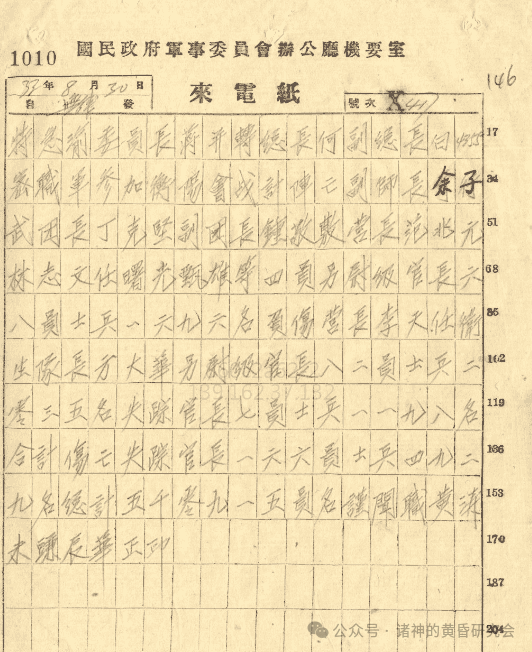 1010 國民政府軍事委員會辦公廳機要室
146
33年8月30日
自 發
來電紙
號次 X 41
委員長蔣 總長何副總長白 17
職軍參加衡陽會戰計伸亡副師長余子 34
武團長丁克堅副團長鍾敬敷營長范兆元 51
林志文任曙光甄雄等四員另尉級官長六 68
八員士兵一六九六名負傷營長李天任衛 85
生隊長方大華另尉級官長八二員士兵二 102
零三五名失踪官長七員士兵一一九八名 119
合計傷亡失踪官長一六六員士兵四九二 136
九名總計五千零九一五員名謹聞職黃濤 153
未 辰華正印 170
187
204
公众号·诸神的黄昏研究会